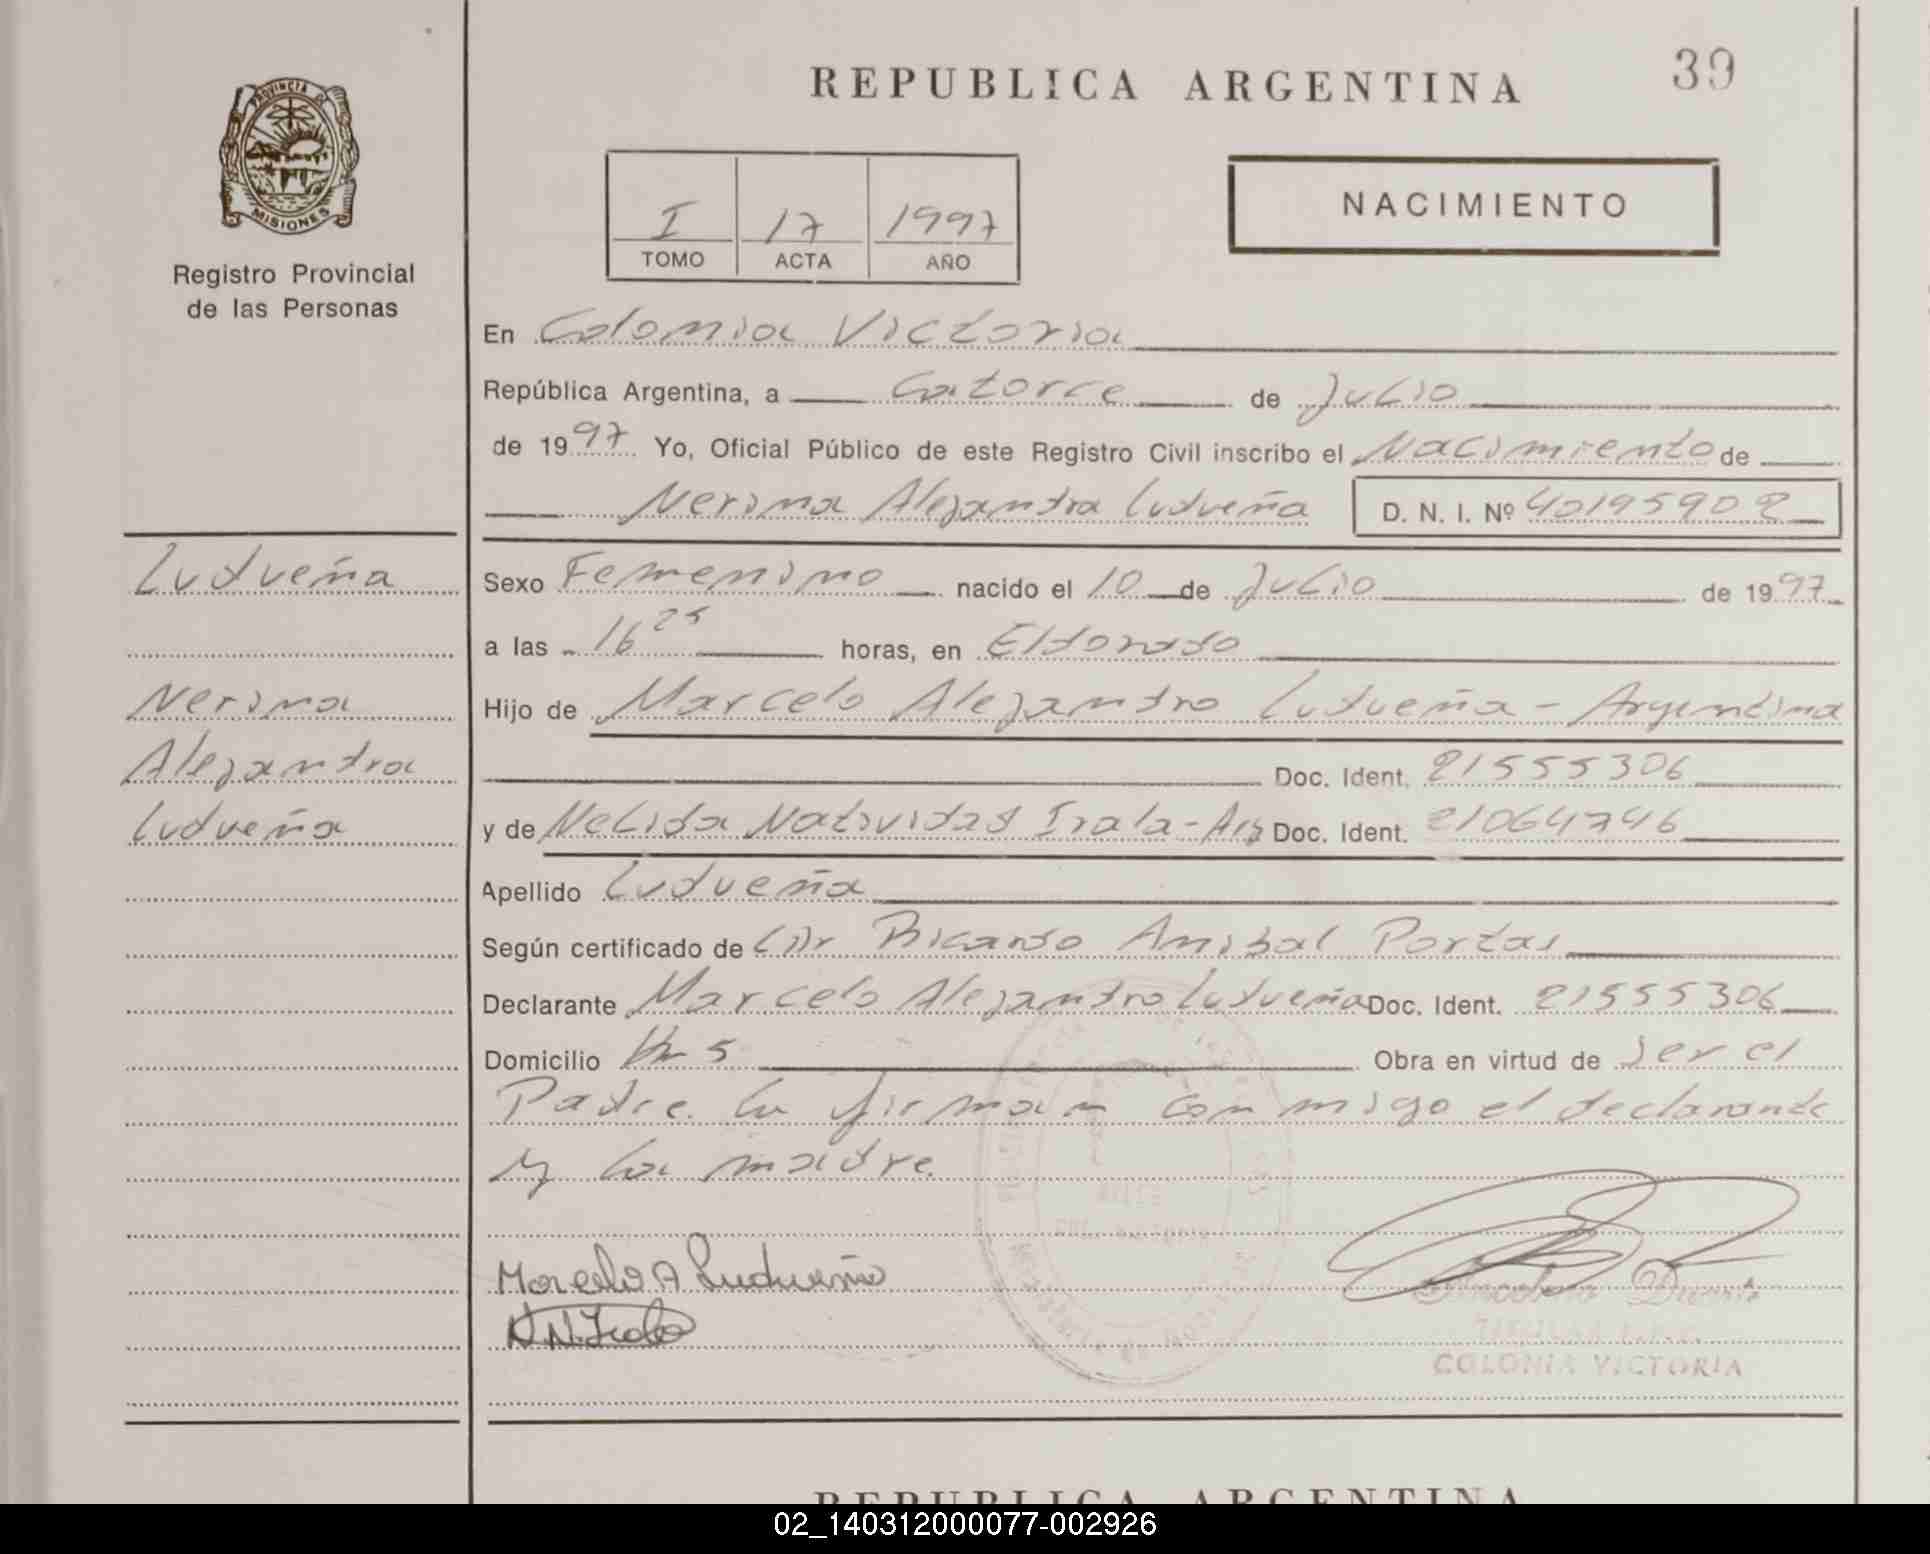 REPUBLICA ARGENTINA
39
PROVINCIA DE
MISIONES
Registro Provincial
de las Personas
I 17 1997
TOMO ACTA AÑO
NACIMIENTO
En Colonia Victoria
República Argentina, a Catorce de Julio
de 1997 Yo, Oficial Público de este Registro Civil inscribo el Nacimiento de
Nerina Alejandra Ludueña D. N. I. Nº 40195902
Ludueña
Nerina
Alejandra
Ludueña
Sexo Femenino nacido el 10 de Julio de 1997
a las 16 25 horas, en Eldorado
Hijo de Marcelo Alejandro Ludueña - Argentina
Doc. Ident. 21555306
y de Nelida Natividad Irala - Arg Doc. Ident. 21064746
Apellido Ludueña
Según certificado de Ricardo Anibal Portas
Declarante Marcelo Alejandro Ludueña Doc. Ident. 21555306
Domicilio Km 5 Obra en virtud de ser el
Padre. La firman con migo el declarante
y la madre.
Marcelo A Ludueña
N.N. Irala
Duarte
COLONIA VICTORIA
REPUBLICA ARGENTINA
02_140312000077-002926